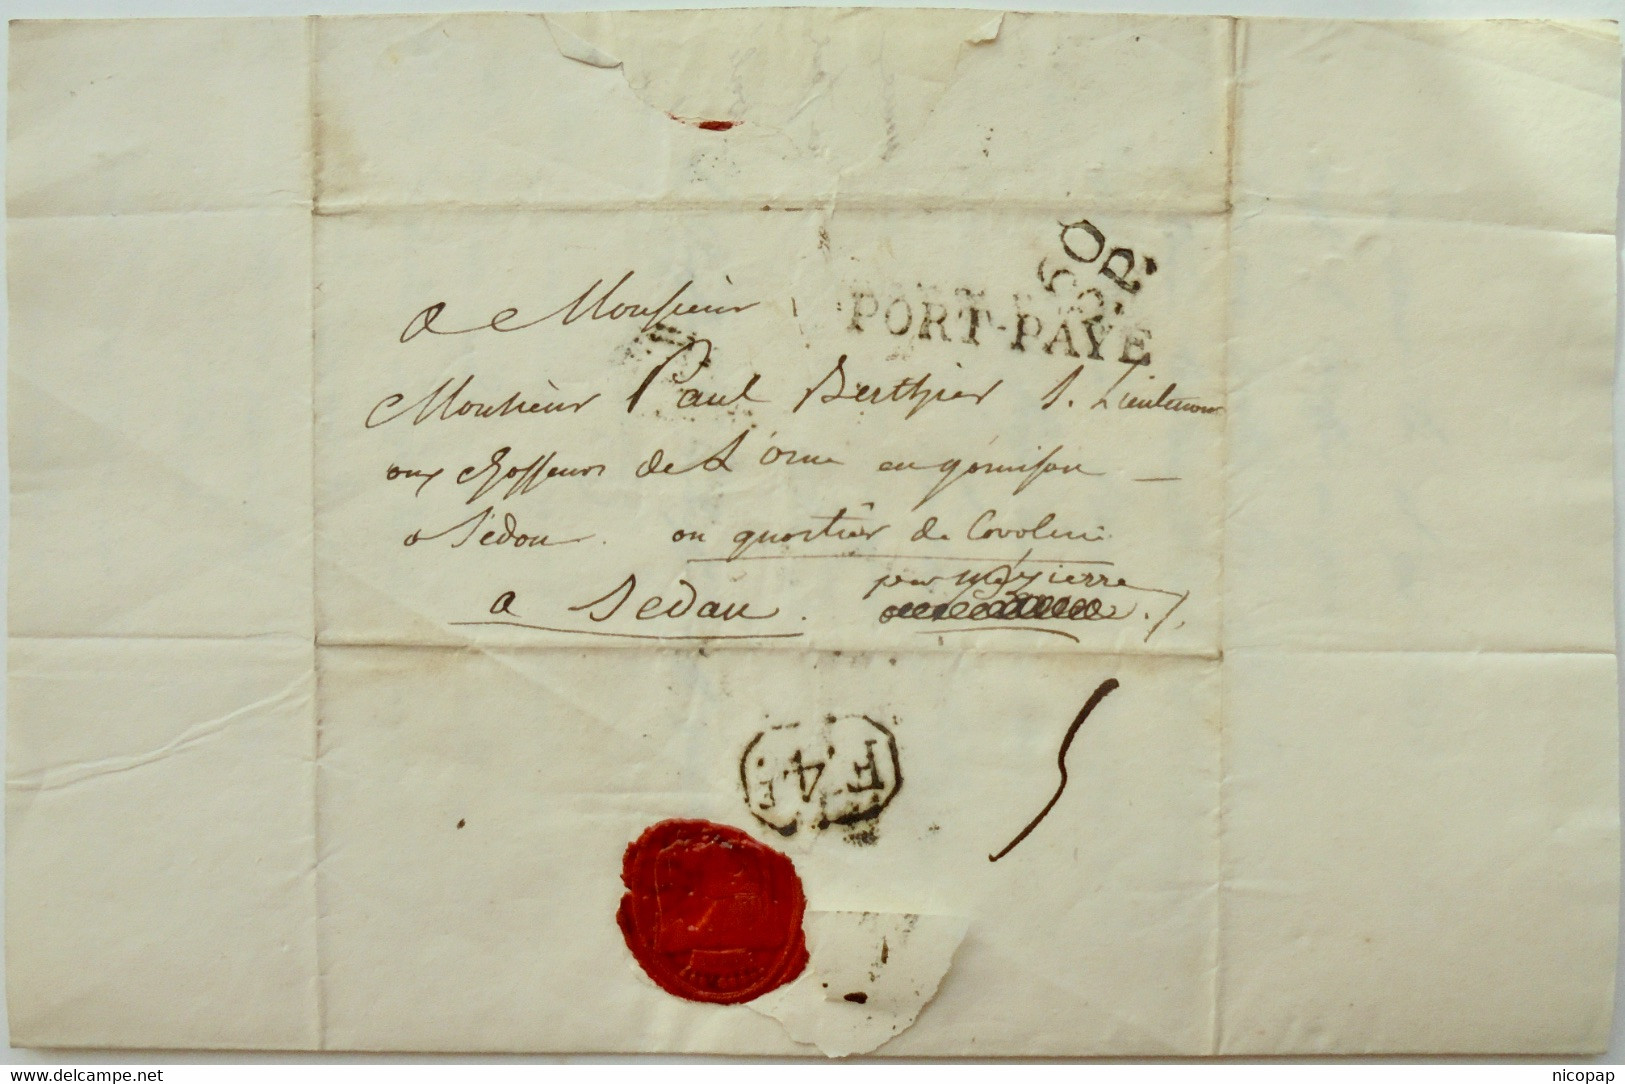 60
PORT-PAYE
a Monsieur
Monsieur Paul Berthier S. Lieutenant
aux chasseurs de L'orne en garnison —
a Sedan. ou quartier de
par Mézierre
a Sedan.
5
F.
4.
E
www.delcampe.net
nicopap